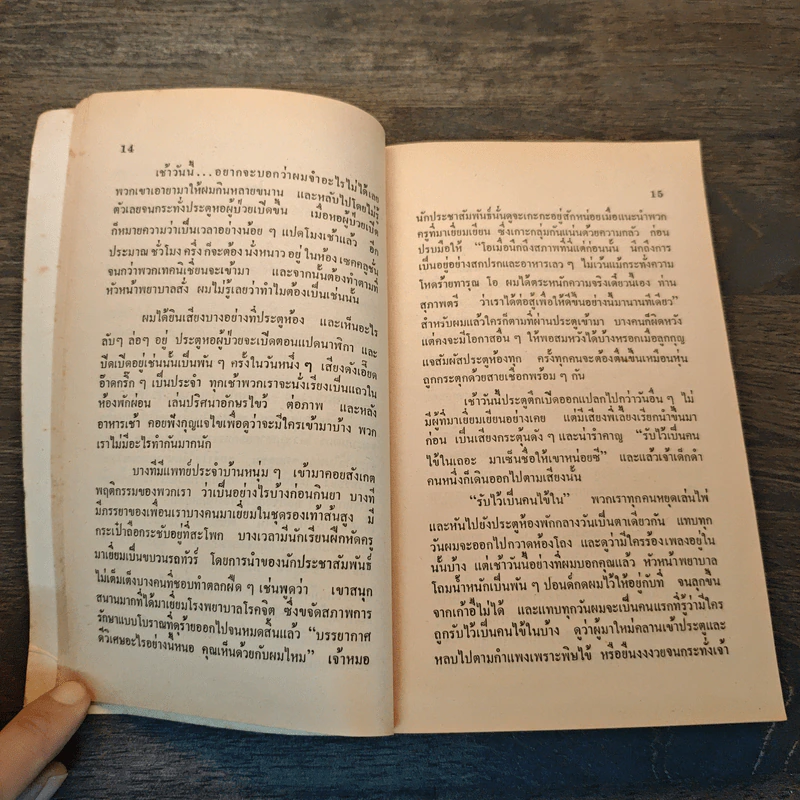 14
เช้าวันนี้...อยากจะบอกว่าผมจำอะไรไม่ได้เลย
พวกเขาเอายามาให้ผมกินหลายขนาน และหลับไปโดยไม่รู้
ตัวเลยจนกระทั่งประตูหอผู้ป่วยเปิดขึ้น เมื่อหอผู้ป่วยเปิด
ก็หมายความว่าเป็นเวลาอย่างน้อย ๆ แปดโมงเช้าแล้ว อีก
ประมาณ ชั่วโมง ครึ่ง ก็จะต้อง นั่งหนาว อยู่ ในห้อง เซคคลูชั่น
จนกว่าพวกเทคนิเชี่ยนจะเข้ามา และจากนั้นต้องทำตามที่
หัวหน้าพยาบาลสั่ง ผมไม่รู้เลยว่าทำไมต้องเป็นเช่นนั้น
ผมได้ยินเสียงบางอย่างที่ประตูห้อง และเห็นอะไร
ลับๆ ล่อๆ อยู่ ประตูหอผู้ป่วยจะเปิดตอนแปดนาฬิกา และ
ปิดเปิดอยู่เช่นนั้นเป็นพัน ๆ ครั้งในวันหนึ่ง ๆ เสียงดังเอียด
อ๊าดกริ๊ก ๆ เป็นประจำ ทุกเช้าพวกเราจะนั่งเรียงเป็นแถวใน
ห้องพักผ่อน เล่นปริศนาอักษรไขว้ ต่อภาพ และหลัง
อาหารเช้า คอยฟังกุญแจไขเพื่อดูว่าจะมีใครเข้ามาบ้าง พวก
เราไม่มีอะไรทำกันมากนัก
บางทีมีแพทย์ประจำบ้านหนุ่ม ๆ เข้ามาคอยสังเกต
พฤติกรรมของพวกเรา ว่าเป็นอย่างไรบ้างก่อนกินยา บางที
มีภรรยาของเพื่อนเราบางคนมาเยี่ยมในชุดรองเท้าส้นสูง มี
กระเป๋าถือกระชับอยู่ที่สะโพก บางเวลามีนักเรียนฝึกหัดครู
มาเยี่ยมเป็นขบวนรถทัวร์ โดยการนำของนักประชาสัมพันธ์
ไม่เต็มเต็งบางคนที่ชอบทำตลกฝืด ๆ เช่นพูดว่า เขาสนุก
สนานมากที่ได้มาเยี่ยมโรงพยาบาลโรคจิต ซึ่งขจัดสภาพการ
รักษาแบบโบราณที่ดุร้ายออกไปจนหมดสิ้นแล้ว “บรรยากาศ
ดีวิเศษอะไรอย่างนี้หนอ คุณเห็นด้วยกับผมไหม” เจ้าหมอ
15
นักประชาสัมพันธ์นั่นดูจะเกะกะอยู่สักหน่อยเมื่อแนะนำพวก
ครูที่มาเยี่ยมเยียน ซึ่งเกาะกลุ่มกันแน่นด้วยความกลัว ก่อน
ปรบมือให้ “โอเมื่อนึกถึงสภาพที่นี่แต่ก่อนนั้น นึกถึงการ
เป็นอยู่อย่างสกปรกและอาหารเลว ๆ ไม่เว้นแม้กระทั่งความ
โหดร้ายทารุณ โอ ผมได้ตระหนักความจริงดีเดี๋ยวนี้เอง ท่าน
สุภาพสตรี ว่าเราได้ต่อสู้เพื่อให้ดีขึ้นอย่างนี้มานานทีเดียว”
สำหรับผมแล้วใครก็ตามที่ผ่านประตูเข้ามา บางคนก็ผิดหวัง
แต่คงจะมีโอกาสอื่น ๆ ให้พอสมหวังได้บ้างหรอกเมื่อลูกกุญ
แจสัมผัสประตูห้องทุก ครั้งทุกคนจะต้องตื่นขึ้นเหมือนหุ่น
ถูกกระตุกด้วยสายเชือกพร้อม ๆ กัน
เช้าวันนี้ประตูตึกเปิดออกแปลกไปกว่าวันอื่น ๆ ไม่
มีผู้ที่มาเยี่ยมเยียนอย่างเคย แต่มีเสียงพี่เลี้ยงเรียกนำขึ้นมา
ก่อน เป็นเสียงกระตุ้นดัง ๆ และน่ารำคาญ “รับไว้เป็นคน
ไข้ในเถอะ มาเซ็นชื่อให้เขาหน่อยซี” และแล้วเจ้าเด็กดำ
คนหนึ่งก็เดินออกไปตามเสียงนั้น
“รับไว้เป็นคนไข้ใน” พวกเราทุกคนหยุดเล่นไพ่
และหันไปยังประตูห้องพักกลางวันเป็นตาเดียวกัน แทบทุก
วันผมจะออกไปกวาดห้องโถง และดูว่ามีใครร้องเพลงอยู่ใน
นั้นบ้าง แต่เช้าวันนี้อย่างที่ผมบอกคุณแล้ว หัวหน้าพยาบาล
โถมน้ำหนักเป็นพัน ๆ ปอนด์กดผมไว้ให้อยู่กับที่ จนลุกขึ้น
จากเก้าอี้ไม่ได้ และแทบทุกวันผมจะเป็นคนแรกที่รู้ว่ามีใคร
ถูกรับไว้เป็นคนไข้ในบ้าง ดูว่าผู้มาใหม่คลานเข้าประตูและ
หลบไปตามกำแพงเพราะพิษไข้ หรือยืนงงงวยจนกระทั่งเจ้า